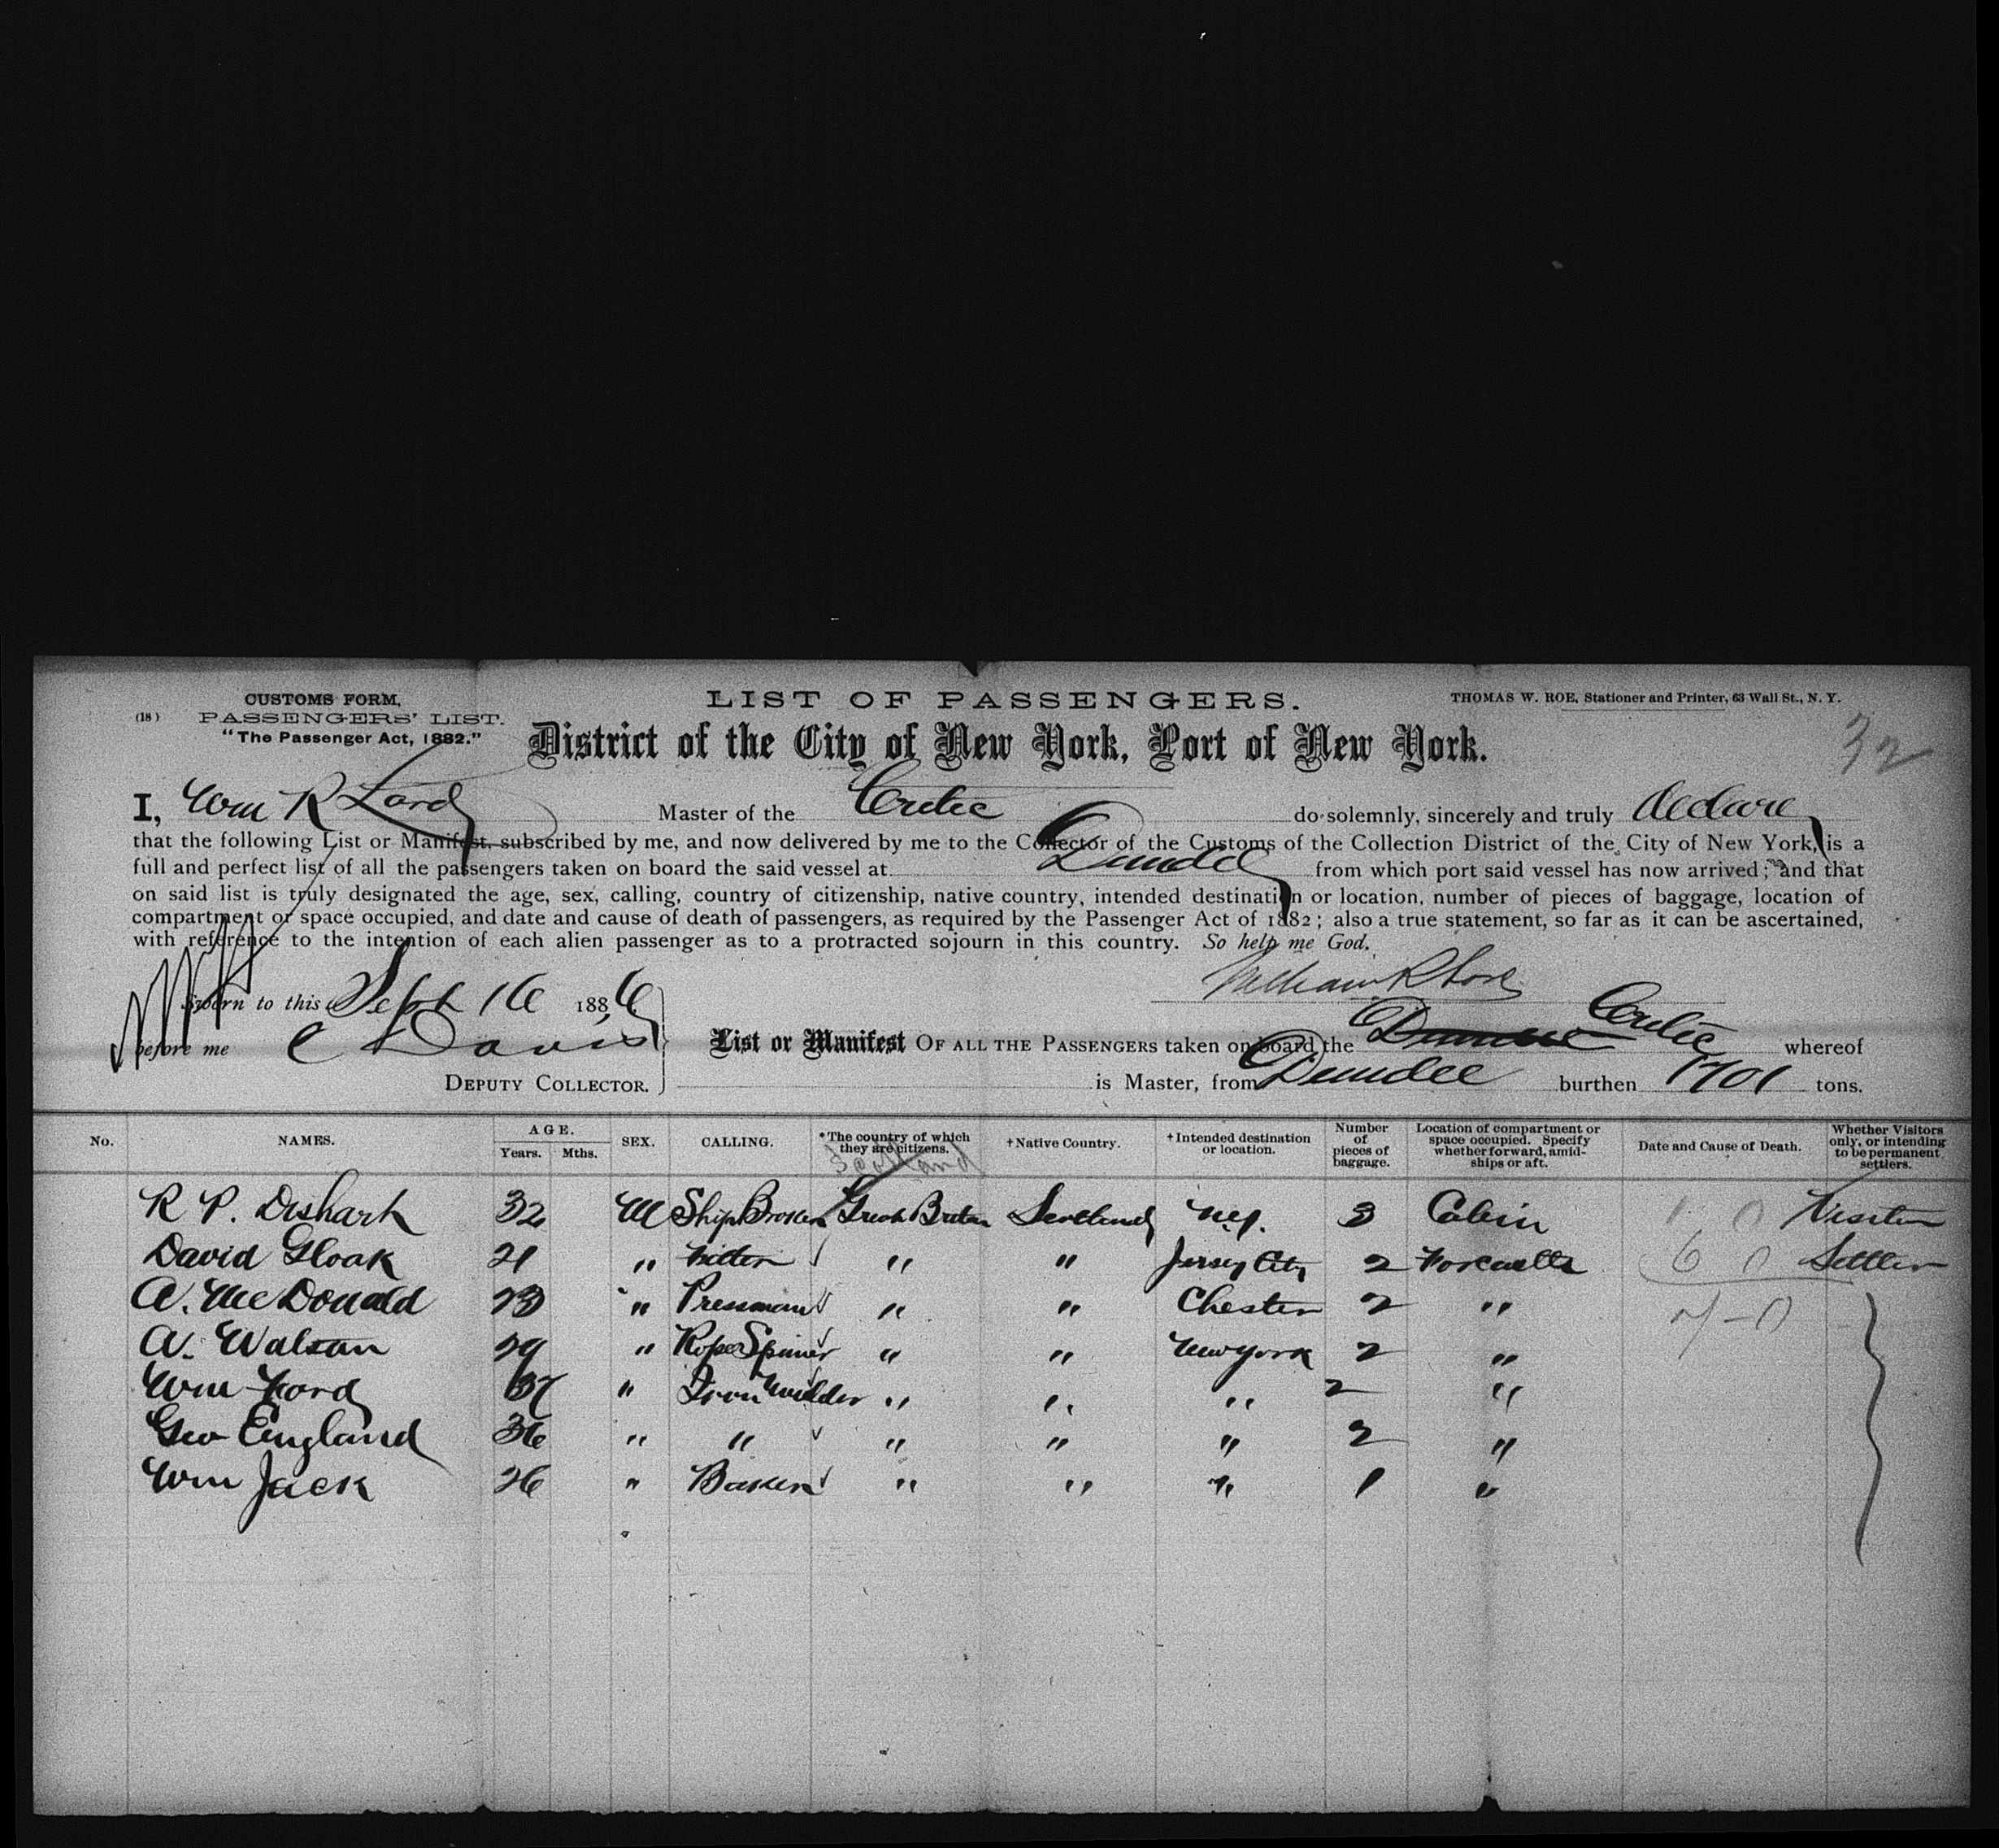 CUSTOMS FORM,
(18) PASSENGERS' LIST.
"The Passenger Act, 1882."
LIST OF PASSENGERS.
THOMAS W. ROE, Stationer and Printer, 63 Wall St., N. Y.
District of the City of New York, Port of New York.
32
I, Wm R Lord Master of the Critic do solemnly, sincerely and truly declare
that the following List or Manifest, subscribed by me, and now delivered by me to the Collector of the Customs of the Collection District of the City of New York, is a
full and perfect list of all the passengers taken on board the said vessel at Dundee from which port said vessel has now arrived; and that
on said list is truly designated the age, sex, calling, country of citizenship, native country, intended destination or location, number of pieces of baggage, location of
compartment or space occupied, and date and cause of death of passengers, as required by the Passenger Act of 1882; also a true statement, so far as it can be ascertained,
with reference to the intention of each alien passenger as to a protracted sojourn in this country. So help me God.
William R Lord
Sworn to this Sept 16 1886
before me C Davis
DEPUTY COLLECTOR.
List or Manifest OF ALL THE PASSENGERS taken on board the Dundee Critic whereof
is Master, from Dundee burthen 1701 tons.
No. NAMES. AGE. Years. Mths. SEX. CALLING. *The country of which they are citizens. †Native Country. †Intended destination or location. Number of pieces of baggage. Location of compartment or space occupied. Specify whether forward, amidships or aft. Date and Cause of Death. Whether Visitors only, or intending to be permanent settlers.
Scotland
R P. Dishart 32 M Ship Broker Great Britan Scotland N.Y. 3 Cabin 1 0 Visitor
David Gloak 21 " " " Jersey City 2 6 0 Settler
A. McDonald 23 " Pressman " " Chester 2 " 7-0
A. Watson 29 " Rope Spiner " " New York 2 "
Wm Ford 37 " Iron Moulder " " " 2 "
Geo England 36 " " " " " 2 "
Wm Jack 26 " Baker " " " 1 "